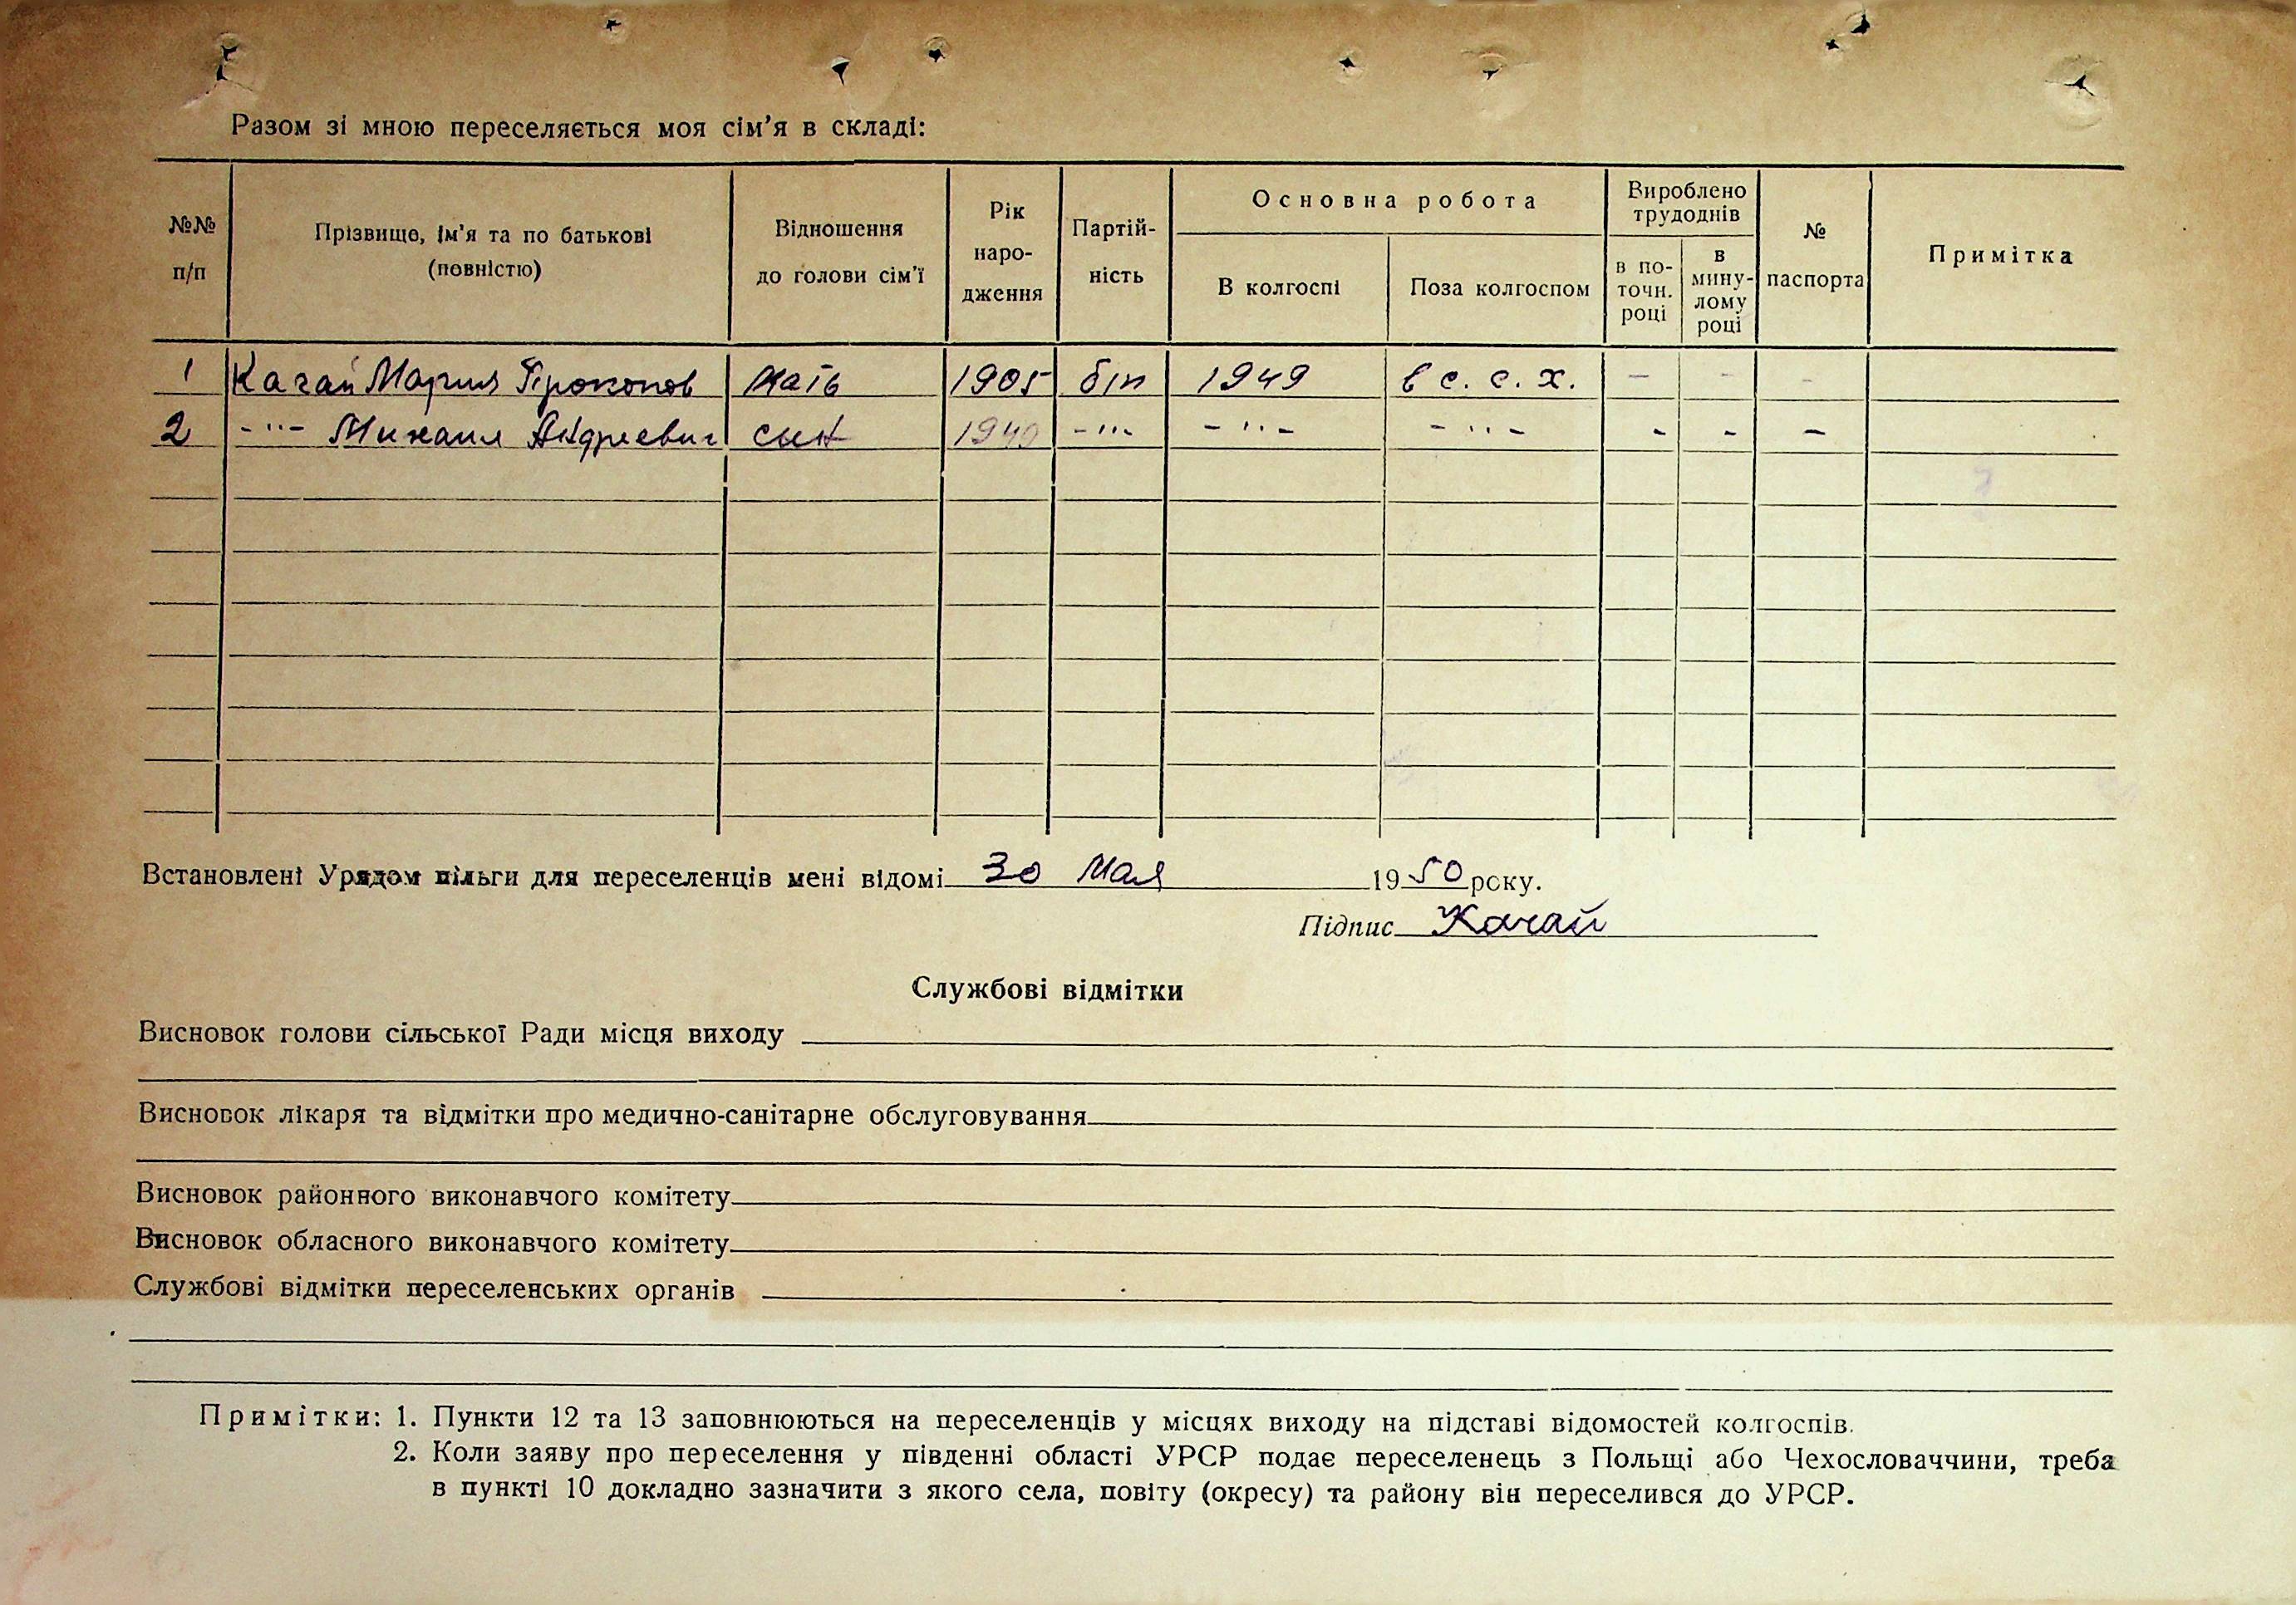 Разом зі мною переселяється моя сім'я в складі:
№№ п/п
Прізвище, ім'я та по батькові (повністю)
Відношення до голови сім'ї
Рік наро- дження
Партій- ність
Основна робота
В колгоспі
Поза колгоспом
Вироблено трудоднів
в по- точн. році
в мину- лому році
№ паспорта
Примітка
1 Качай Мария Прокопов мать 1905 б/п 1949 в с. с. х. - - -
2 -"- Михаил Андреевич сын 1940 -"- -"- -"- - - -
Встановлені Урядом пільги для переселенців мені відомі 30 Мая 1950 року.
Підпис Качай
Службові відмітки
Висновок голови сільської Ради місця виходу
Висновок лікаря та відмітки про медично-санітарне обслуговування
Висновок районного виконавчого комітету
Висновок обласного виконавчого комітету
Службові відмітки переселенських органів
Примітки: 1. Пункти 12 та 13 заповнюються на переселенців у місцях виходу на підставі відомостей колгоспів.
2. Коли заяву про переселення у південні області УРСР подає переселенець з Польщі або Чехословаччини, треба
в пункті 10 докладно зазначити з якого села, повіту (окресу) та району він переселився до УРСР.